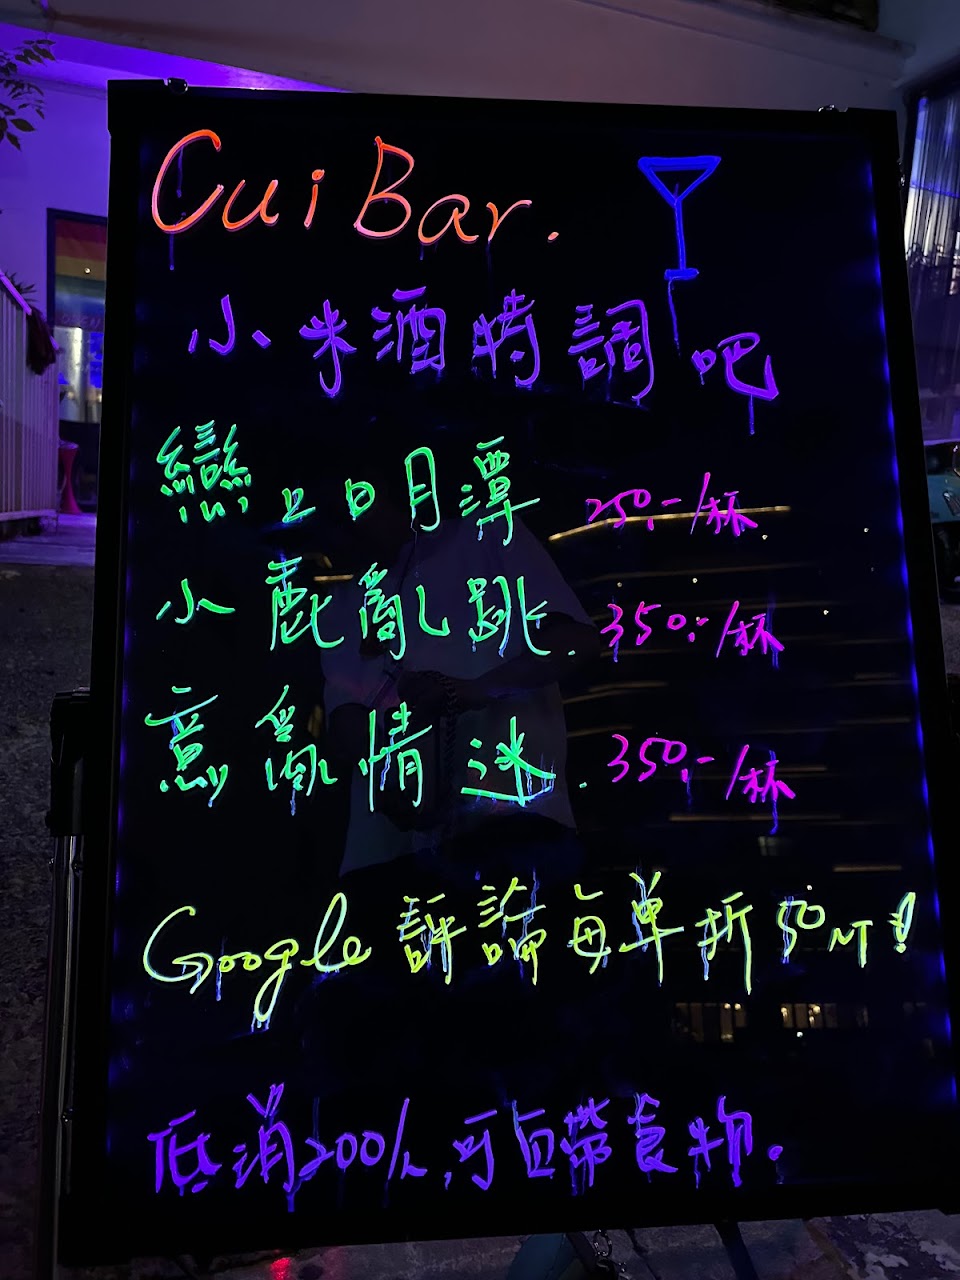 Cui Bar.
小米酒時調吧
戀上日月潭 250.-/杯
小鹿亂跳. 350.-/杯
意亂情迷. 350.-/杯
Google 評論每單折50NT!
低消200/人,可自帶食物。